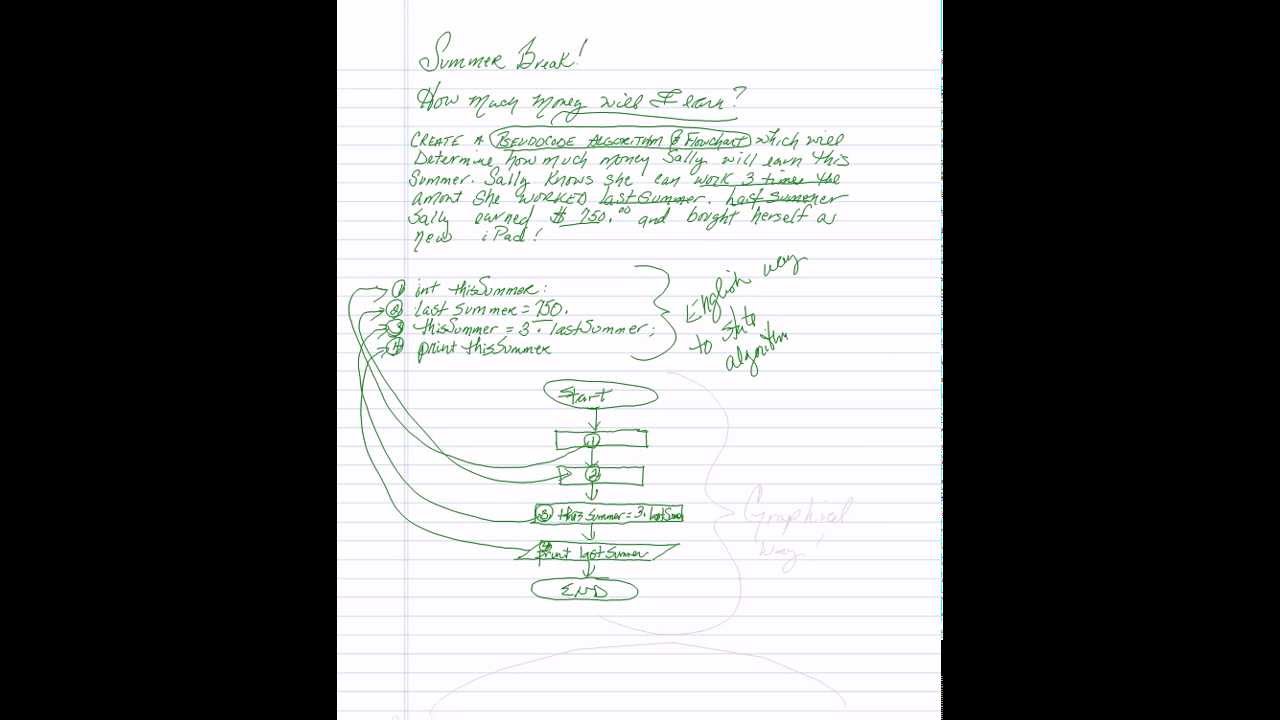 Summer Break!
How much money will I earn?
CREATE A PSEUDOCODE ALGORITHM & Flowchart which will
Determine how much money Sally will earn this
Summer. Sally knows she can work 3 times the
amont she WORKED last summer. Last summer
Sally earned $750.00 and bought herself a
new iPad!
① int thisSummer;
② last summer = 750.
③ thisSummer = 3 · lastSummer;
④ print thisSummer
English way
to state
algorithm
Start
①
②
③ this Summer = 3 · lastSum
④ print last summer
END
Graphical
way!